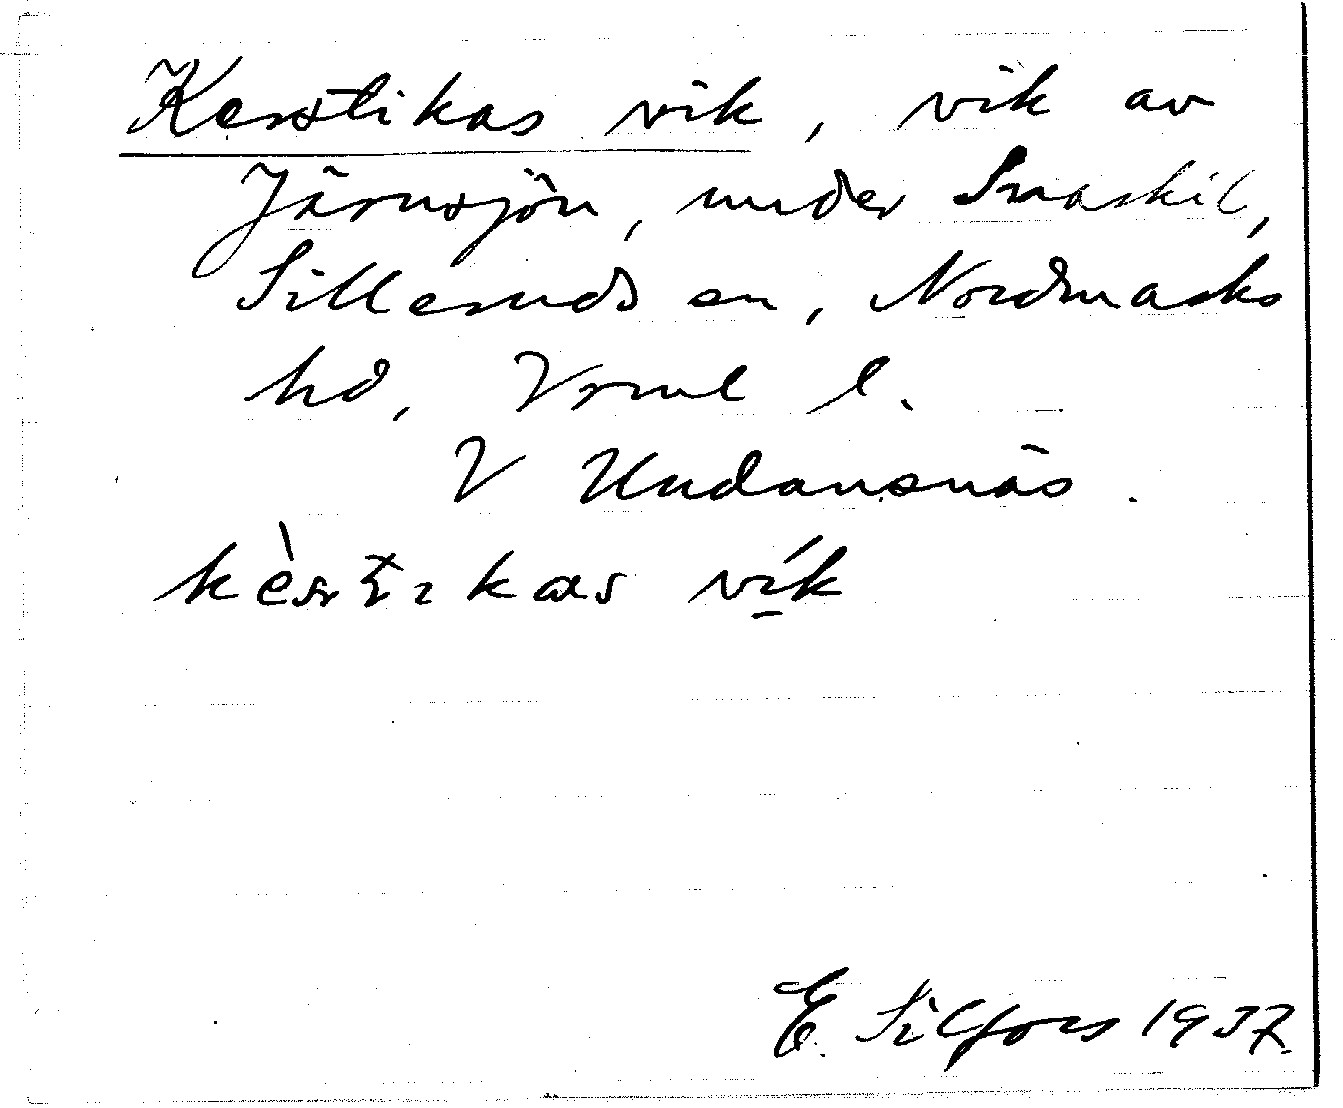 Kerstikas vik, vik av
Järnsjön, under Snarkil,
Sillerud sn, Nordmarks
hd, Vrml l.
V Undansnäs.
vík
E. Silfors 1937.